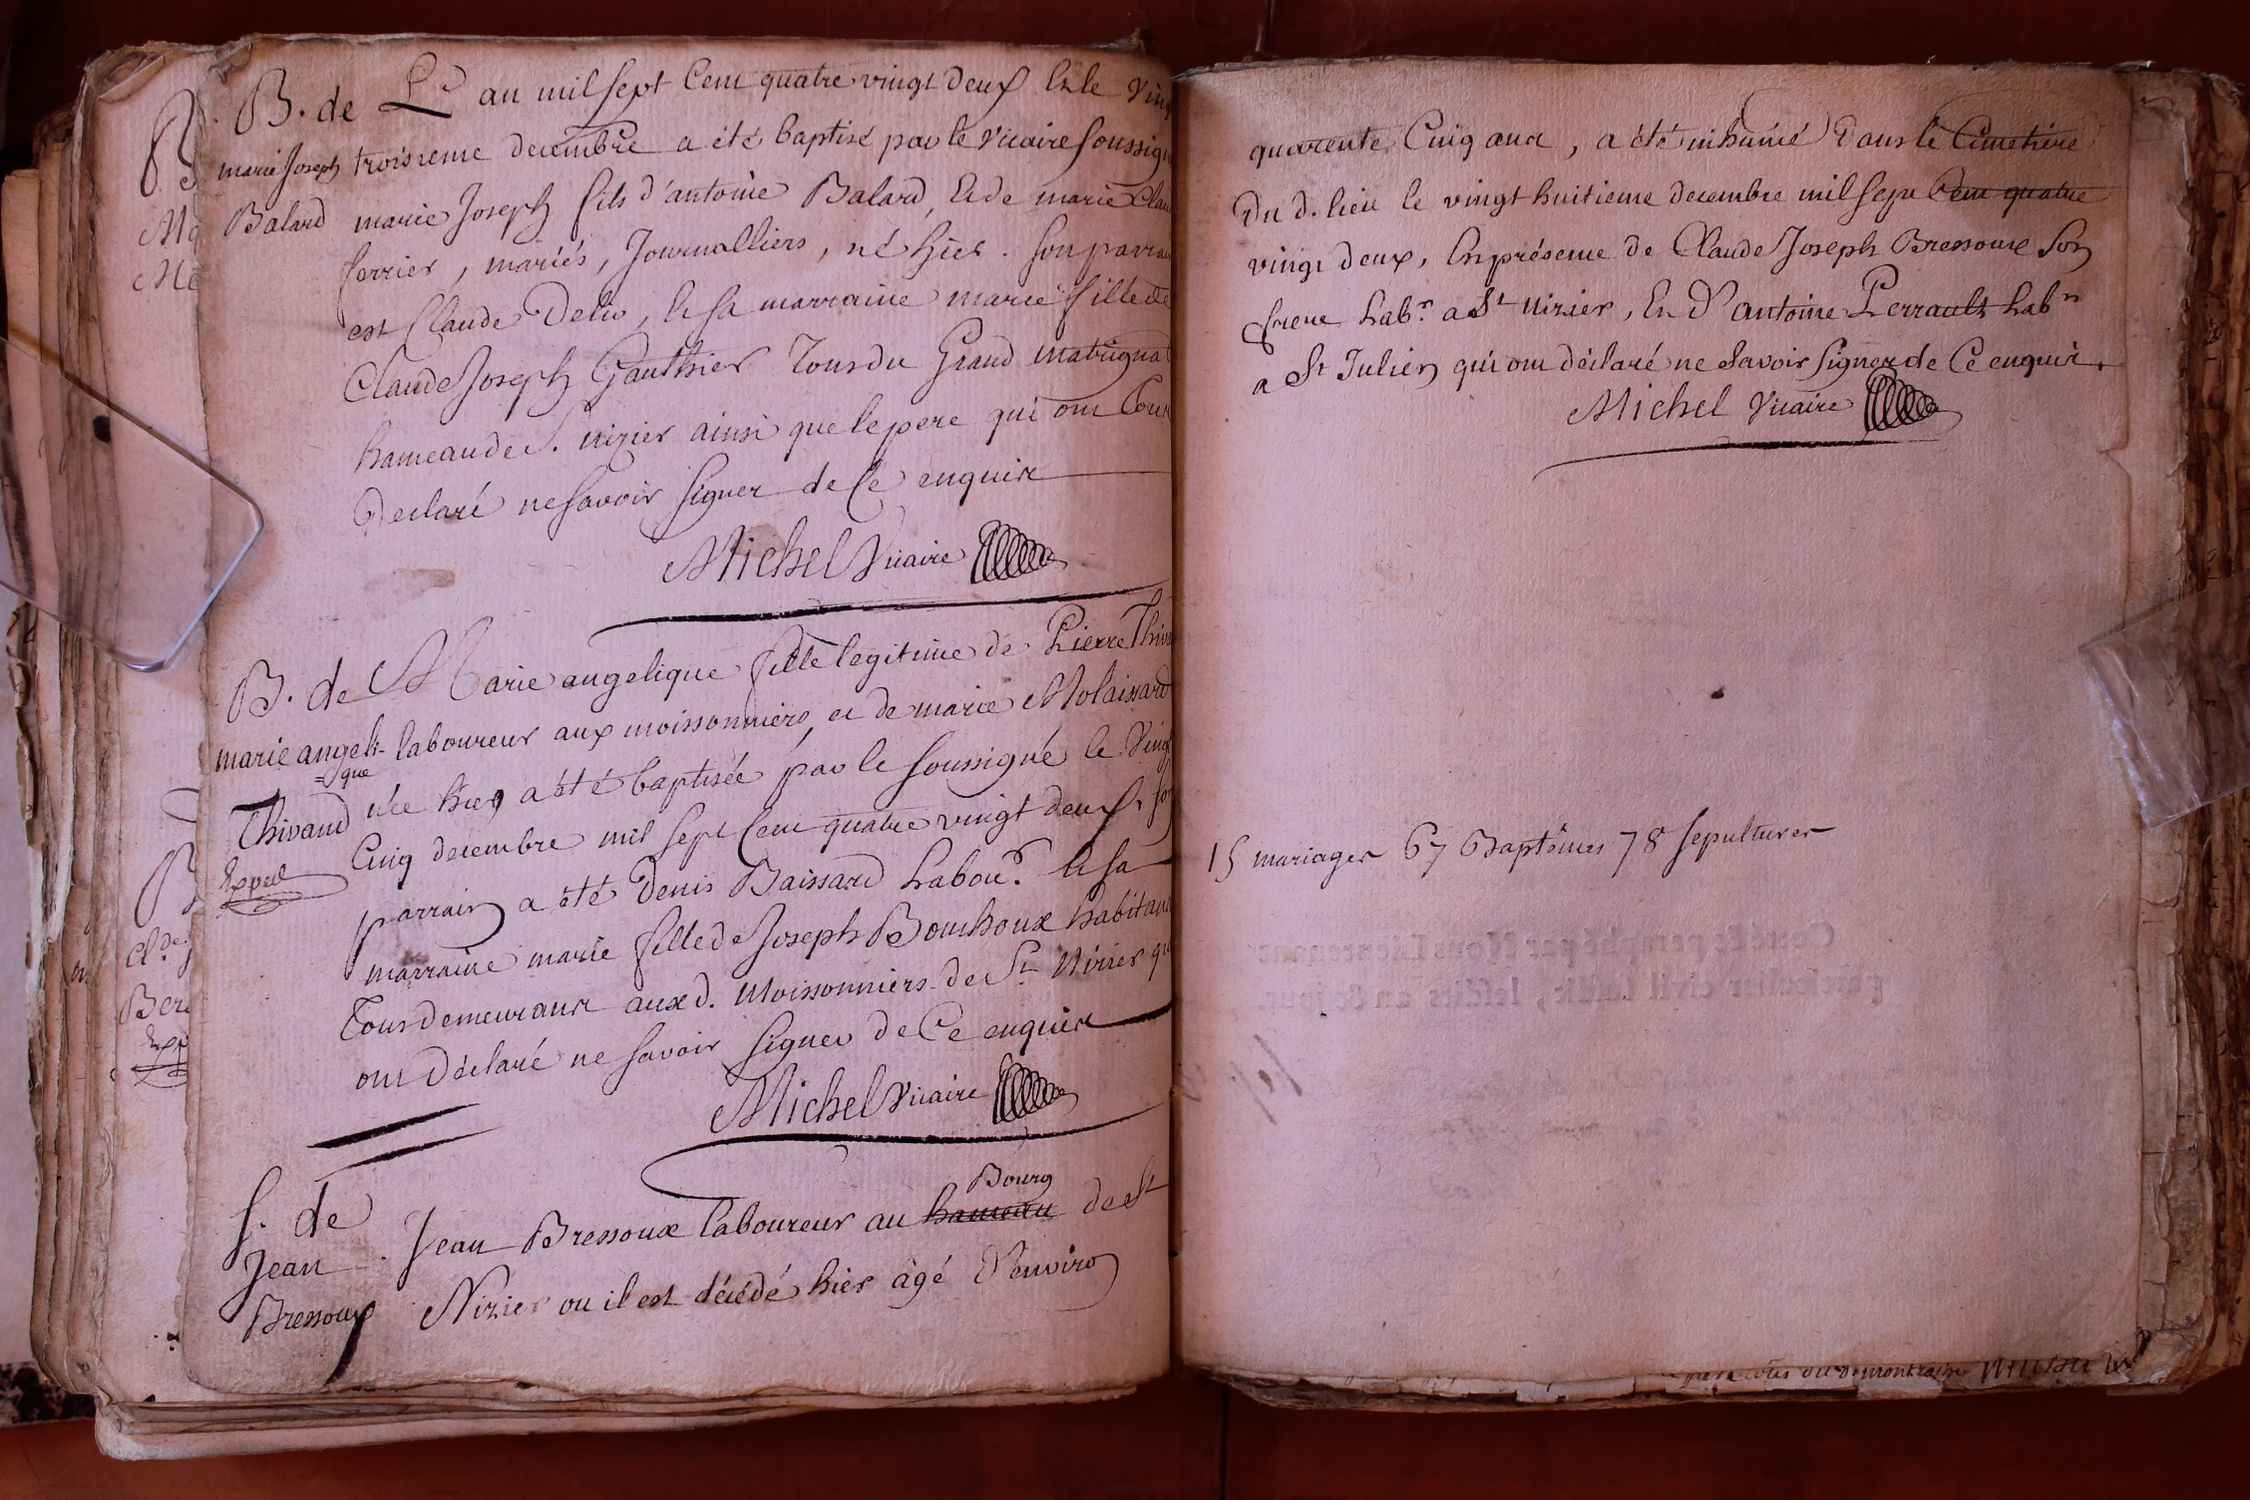 B. de marie Joseph Balard
L'an mil sept Cent quatre vingt deux Et le
troisieme decembre a été baptisé par le vicaire
marie Joseph fils d'antoine Balard, Et de marie
ferrier, mariés, Journalliers, né hier. son
est Claude Delio, Et sa marraine marie fille de
Claude Joseph Gauthier Tous du Grand
hameau de S. nizier ainsi que le pere qui ont
Declaré ne savoir signer de Ce enquis
Michel Vicaire
B. de marie angeli-
=que
Thivand
Exped
Marie angelique fille legitime de Pierre
laboureur aux moissonniers, et de marie
née hier a été baptisée par le soussigné le
Cinq decembre mil sept Cent quatre vingt deux,
parrain a été Denis Baissard Labou.r Et sa
marraine marie fille de Joseph Bouchoux habitans
Tous demeurans aux d. Moissonniers de St Nizier
ont déclaré ne savoir signer de Ce enquis
Michel Vicaire
S. de
Jean
Bressoux
Bourg
Jean Bressoux laboureur au hameau de St
Nizier ou il est décédé hier âgé d'environ
quarente Cinq ans, a été inhumé Dans le Cimetiere
Du d. lieu le vingt huitieme decembre mil sept Cent quatre
vingt deux, En présence de Claude Joseph Bressoux son
frere Labr. a St nizier, Et d'antoine Perrault Labr
a St Julien qui ont déclaré ne Savoir signer de Ce enquis.
Michel Vicaire
15 mariages 67 Baptêmes 78 sepultures